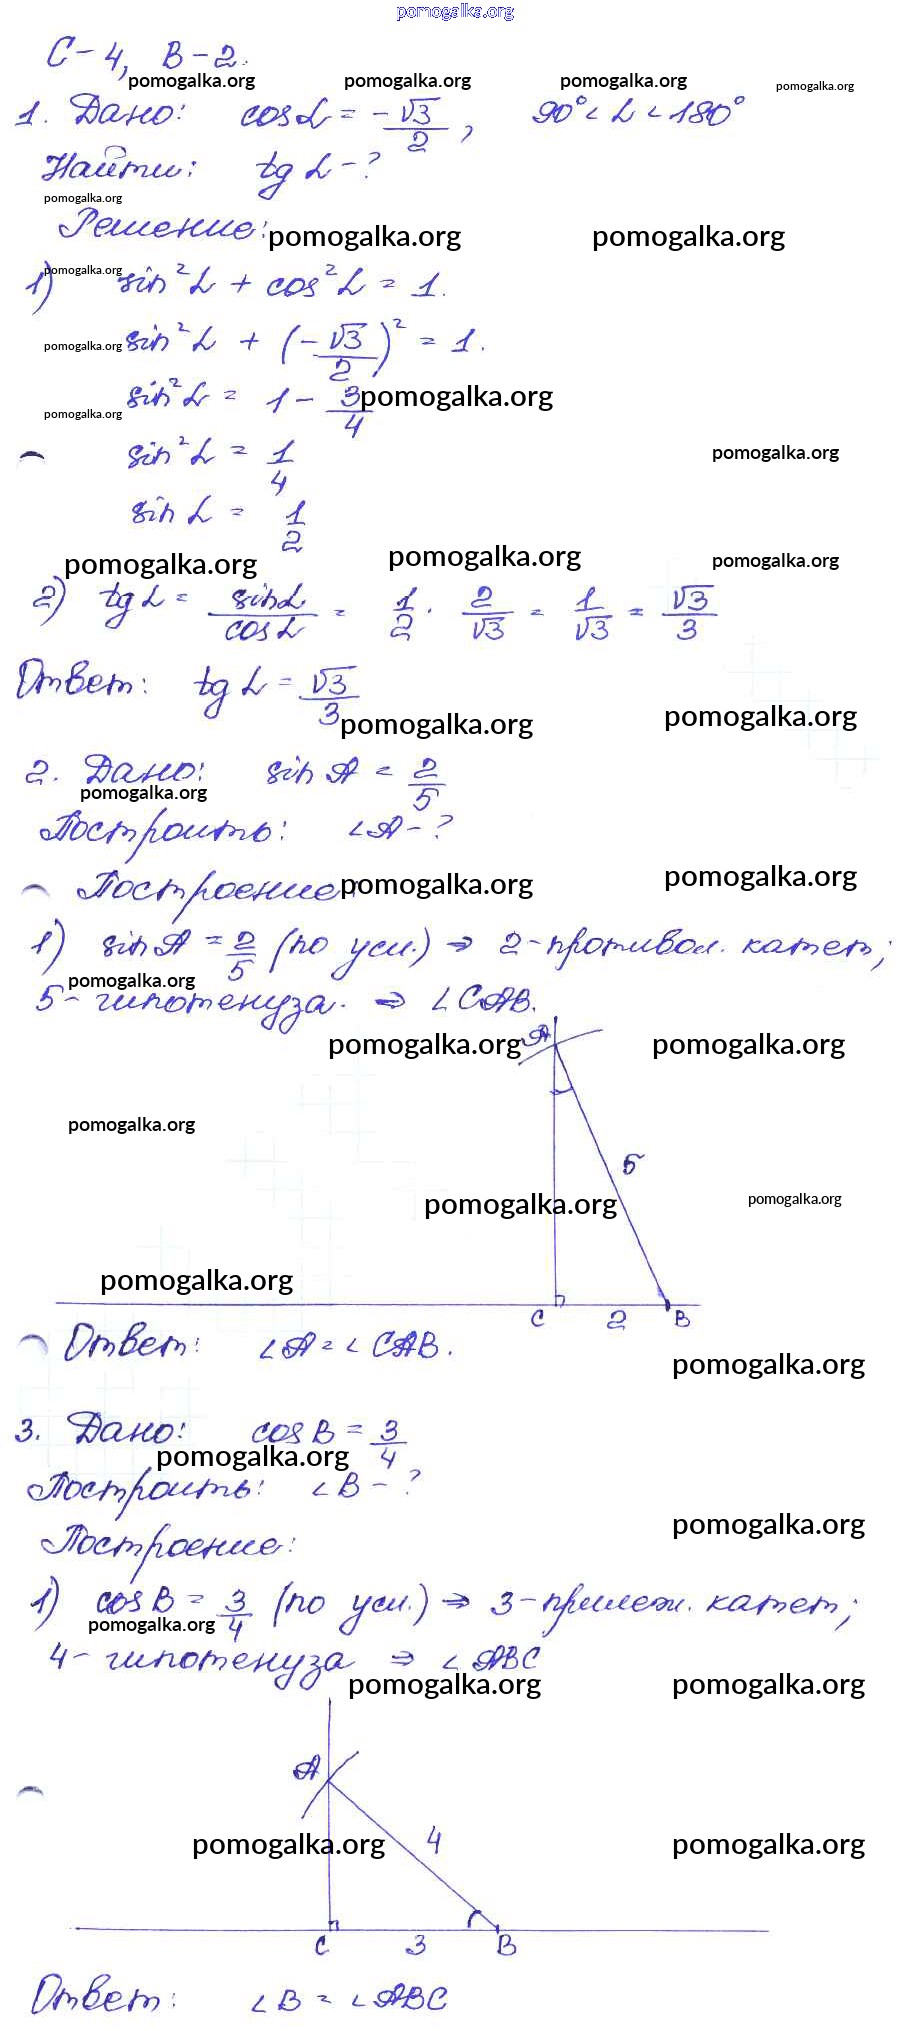 pomogalka.org
С-4, В-2.
pomogalka.org pomogalka.org pomogalka.org pomogalka.org
1. Дано: cos α = -√3/2, 90° < α < 180°
Найти: tg α - ?
pomogalka.org
Решение:
pomogalka.org pomogalka.org
pomogalka.org
1) sin²α + cos²α = 1.
pomogalka.org
sin²α + (-√3/2)² = 1.
sin²α = 1 - 3/4
pomogalka.org
pomogalka.org
sin²α = 1/4
pomogalka.org
sin α = 1/2
pomogalka.org pomogalka.org pomogalka.org
2) tg α = sin α/cos α = 1/2 · 2/√3 = 1/√3 = √3/3
Ответ: tg α = √3/3
pomogalka.org pomogalka.org
2. Дано: sin A = 2/5
pomogalka.org
Построить: ∠A - ?
Построение:
pomogalka.org pomogalka.org
1) sin A = 2/5 (по усл.) ⇒ 2-противол. катет;
pomogalka.org
5- гипотенуза. ⇒ ∠CAB.
A
pomogalka.org pomogalka.org
pomogalka.org
5
pomogalka.org pomogalka.org
pomogalka.org
C 2 B
Ответ: ∠A = ∠CAB.
pomogalka.org
3. Дано: cos B = 3/4
pomogalka.org
Построить: ∠B - ?
pomogalka.org
Построение:
1) cos B = 3/4 (по усл.) ⇒ 3-прилеж. катет;
pomogalka.org
4- гипотенуза ⇒ ∠ABC
pomogalka.org pomogalka.org
A
4
pomogalka.org pomogalka.org
C 3 B
Ответ: ∠B = ∠ABC